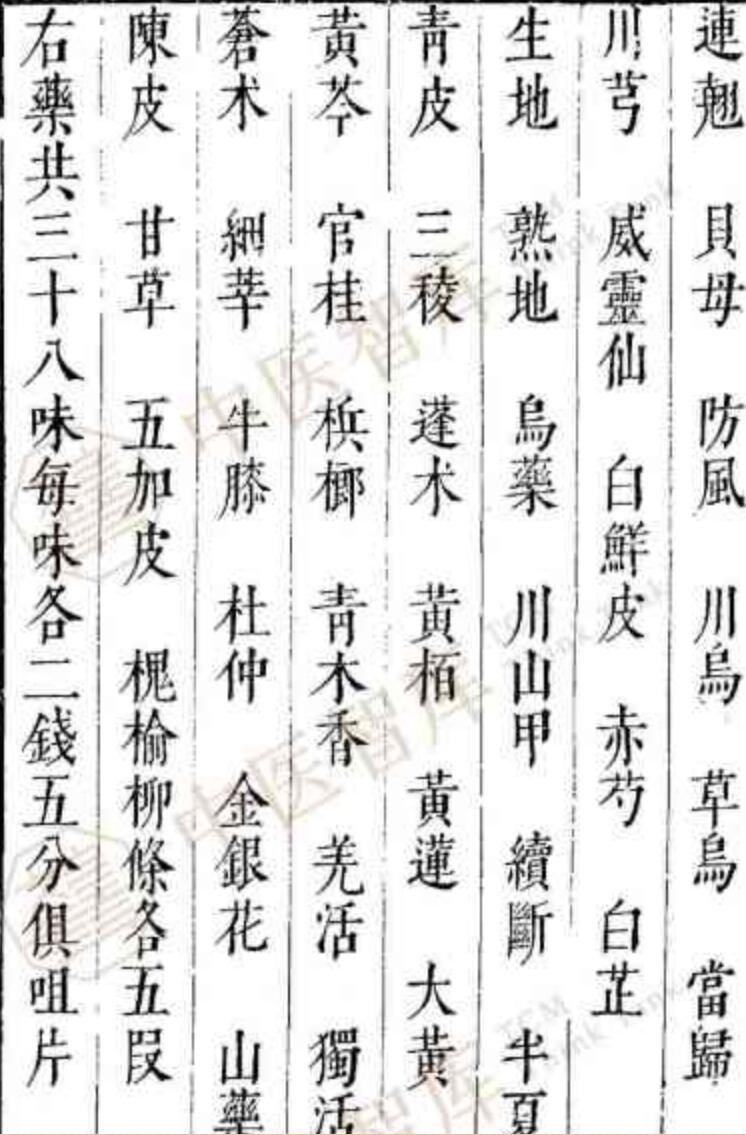 連翹 貝母 防風 川烏 草烏 當歸
川芎 威靈仙 白鮮皮 赤芍 白芷
生地 熟地 烏藥 川山甲 續斷 半夏
靑皮 三稜 蓬术 黃栢 黃蓮 大黃
黃芩 官桂 梹榔 靑木香 羌活 獨活
蒼术 細莘 牛膝 杜仲 金銀花 山藥
陳皮 甘草 五加皮 槐榆柳條各五段
右藥共三十八味每味各二錢五分俱咀片
中医智库
TCM Think Tank
中医智库
TCM Think Tank
TCM Think Tank